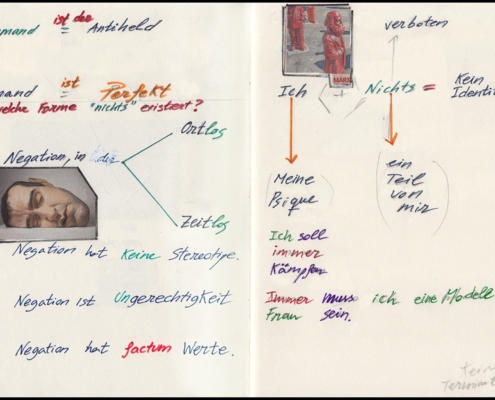 ist der
mand = Antiheld
ist
mand = Perfekt
welche Forme "nichts" existiert?
Ortlos
Negation, in
Zeitlos
Negation hat keine Stereotype.
Negation ist Ungerechtigkeit
Negation hat factum Werte.
verboten
MARX
Ich + Nichts = Kein
Identit
(Meine
Psique)
(ein
Teil
von
mir)
Ich soll
immer
Kämpfen
Immer muss ich eine Modell
Frau sein.